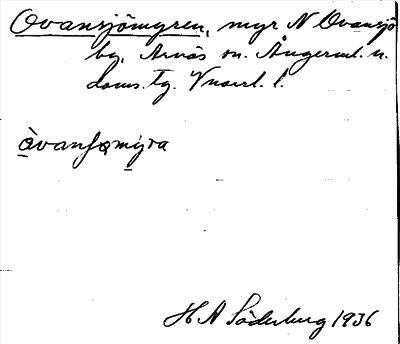 Ovansjömyren, myr N Ovansjö
by, Arnäs sn. Ångerml. n.
doms. tg. Vnaerl. l.
òvanʃømýra
H A Söderberg 1936